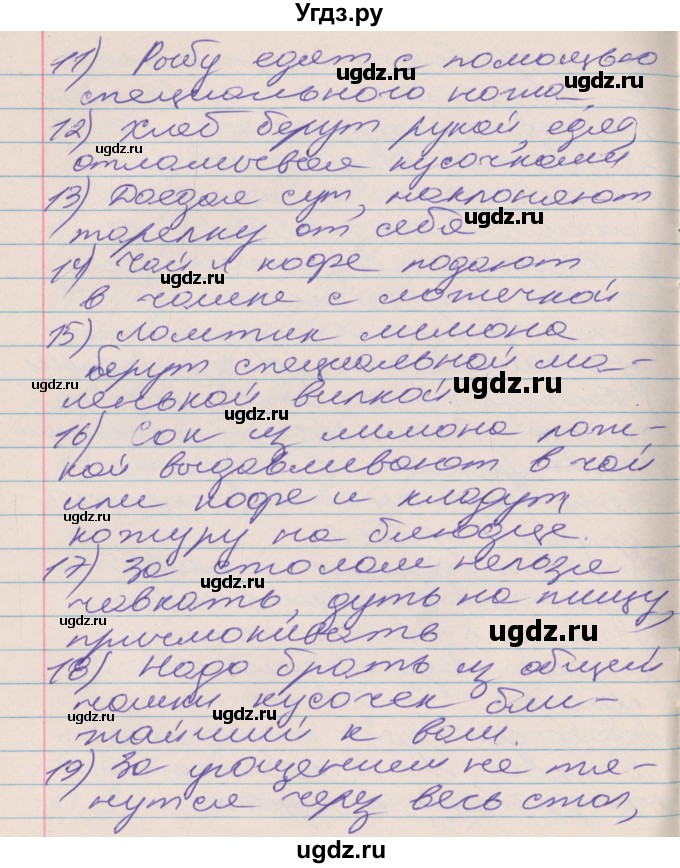 Угдз.ру
11) Рыбу едят с помощью
специального ножа
12) Хлеб берут рукой, едят
отламывая кусочками
13) Доедая суп, наклоняют
тарелку от себя
14) Чай и кофе подают
в чашке с ложечкой
15) Ломтик лимона
берут специальной ма-
ленькой вилкой.
16) Сок из лимона лож-
кой выдавливают в чай
или кофе и кладут
кожуру на блюдце.
17) За столом нельзя
чавкать, дуть на пищу,
причмокивать
18) Надо брать из общей
чашки кусочек бли-
жайший к вам.
19) За угощением не тя-
нутся через весь стол,
ugdz.ru
ugdz.ru
ugdz.ru
ugdz.ru
ugdz.ru
ugdz.ru
ugdz.ru
ugdz.ru
ugdz.ru
ugdz.ru
ugdz.ru
ugdz.ru
ugdz.ru
ugdz.ru
ugdz.ru
ugdz.ru
ugdz.ru
ugdz.ru